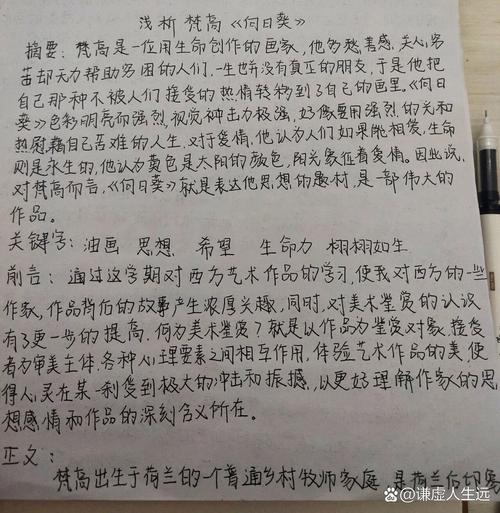 浅析梵高《向日葵》
摘要：梵高是一位用生命创作的画家，他多愁善感，关心穷
苦却无力帮助穷困的人们，一生也并没有真正的朋友，于是他把
自己那种不被人们接受的热情转移到了自己的画里。《向日
葵》色彩明亮而强烈，视觉冲击力极强，好像要用强烈的光和
热慰藉自己苦难的人生。对于爱情，他认为人们如果能相爱，生命
则是永生的，他认为黄色是太阳的颜色，阳光象征着爱情。因此说，
对梵高而言，《向日葵》就是表达他思想的题材，是一部伟大的
作品。
关键字：油画 思想 希望 生命力 栩栩如生
前言：通过这学期对西方艺术作品的学习，使我对西方的一些
作家，作品背后的故事产生浓厚兴趣，同时，对美术鉴赏的认识
有了更一步的提高。何为美术鉴赏？就是以作品为鉴赏对象，接受
者为审美主体，各种心理要素之间相互作用，体验艺术作品的美，使
得人心灵在某一刹受到极大的冲击和振撼，以更好理解作家的思
想感情和作品的深刻含义所在。
正文：
梵高出生于荷兰的一个普通乡村牧师家庭，是荷兰后印象
@谦虚人生远